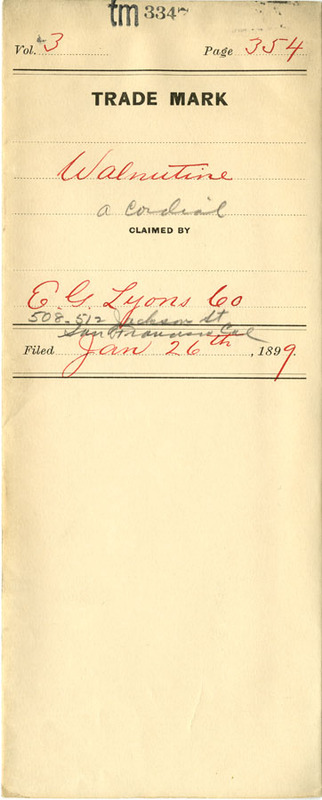 tm 3347
Vol. 3 Page 354
TRADE MARK
Walnutine
a cordial
CLAIMED BY
E. G. Lyons Co
508-512 Jackson St
San Francisco Cal
Filed Jan 26th, 1899.